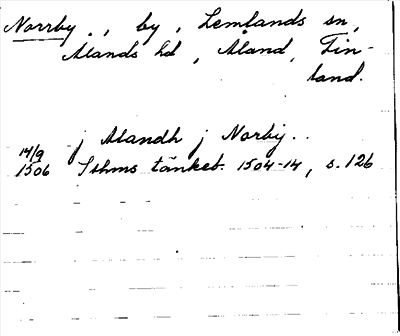 Norrby., by, Lemlands sn,
Ålands hd, Åland, Fin-
land.
j Alandh j Norby..
14/9
1506 Sthms tänkeb. 1504-14, s. 126